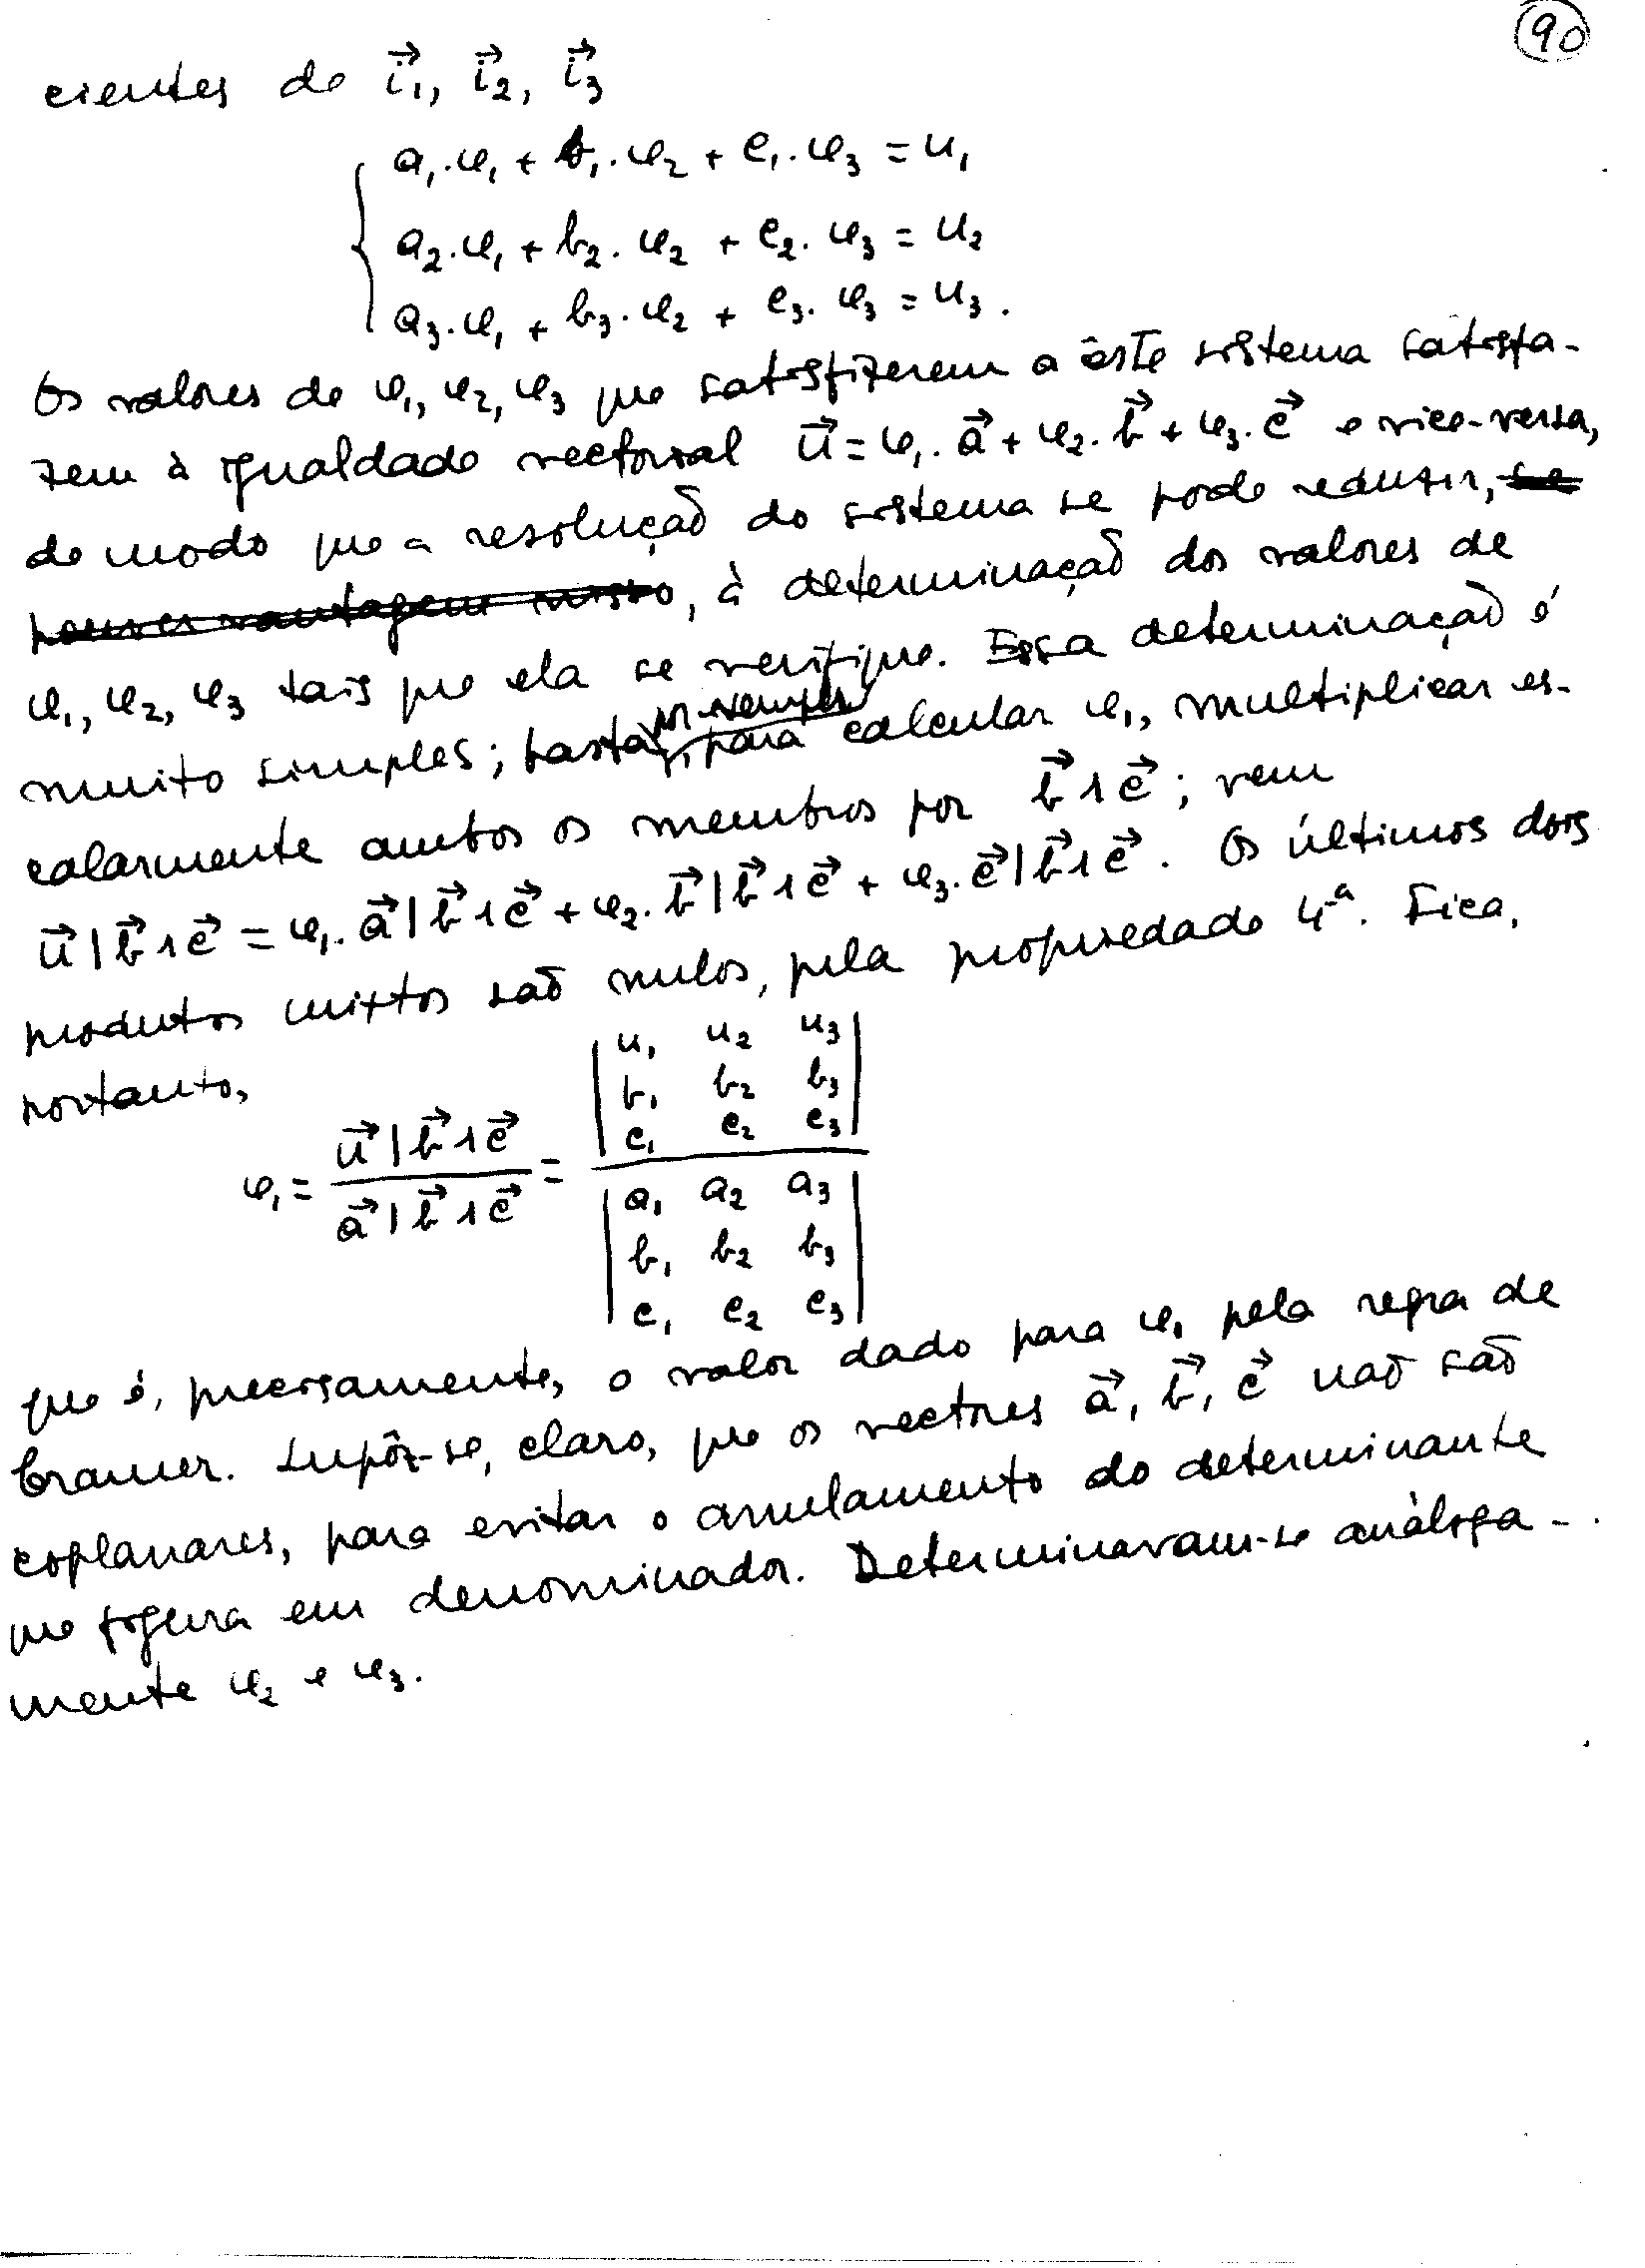 90
cientes de i⃗₁, i⃗₂, i⃗₃
a₁.φ₁ + b₁.φ₂ + c₁.φ₃ = u₁
a₂.φ₁ + b₂.φ₂ + c₂.φ₃ = u₂
a₃.φ₁ + b₃.φ₂ + c₃.φ₃ = u₃.
Os valores de φ₁, φ₂, φ₃ que satisfizerem a êste sistema satisfa-
zem à igualdade vectorial u⃗ = φ₁.a⃗ + φ₂.b⃗ + φ₃.c⃗ e vice-versa,
de modo que a resolução do sistema se pode reduzir, se
houver vantagem nisso, à determinação dos valores de
φ₁, φ₂, φ₃ tais que ela se verifique. Essa determinação é
por exemplo
muito simples; basta, para calcular φ₁, multiplicar es-
calarmente ambos os membros por b⃗∧c⃗; vem
u⃗|b⃗∧c⃗ = φ₁.a⃗|b⃗∧c⃗ + φ₂.b⃗|b⃗∧c⃗ + φ₃.c⃗|b⃗∧c⃗. Os últimos dois
produtos mixtos são nulos, pela propriedade 4ª. Fica,
portanto,
u₁ u₂ u₃
b₁ b₂ b₃
c₁ c₂ c₃
φ₁ = u⃗|b⃗∧c⃗ / a⃗|b⃗∧c⃗ =
a₁ a₂ a₃
b₁ b₂ b₃
c₁ c₂ c₃
que é, precisamente, o valor dado para φ₁ pela regra de
Cramer. Supôs-se, claro, que os vectores a⃗, b⃗, c⃗ não são
coplanares, para evitar o anulamento do determinante
que figura em denominador. Determinavam-se anàloga-
mente φ₂ e φ₃.